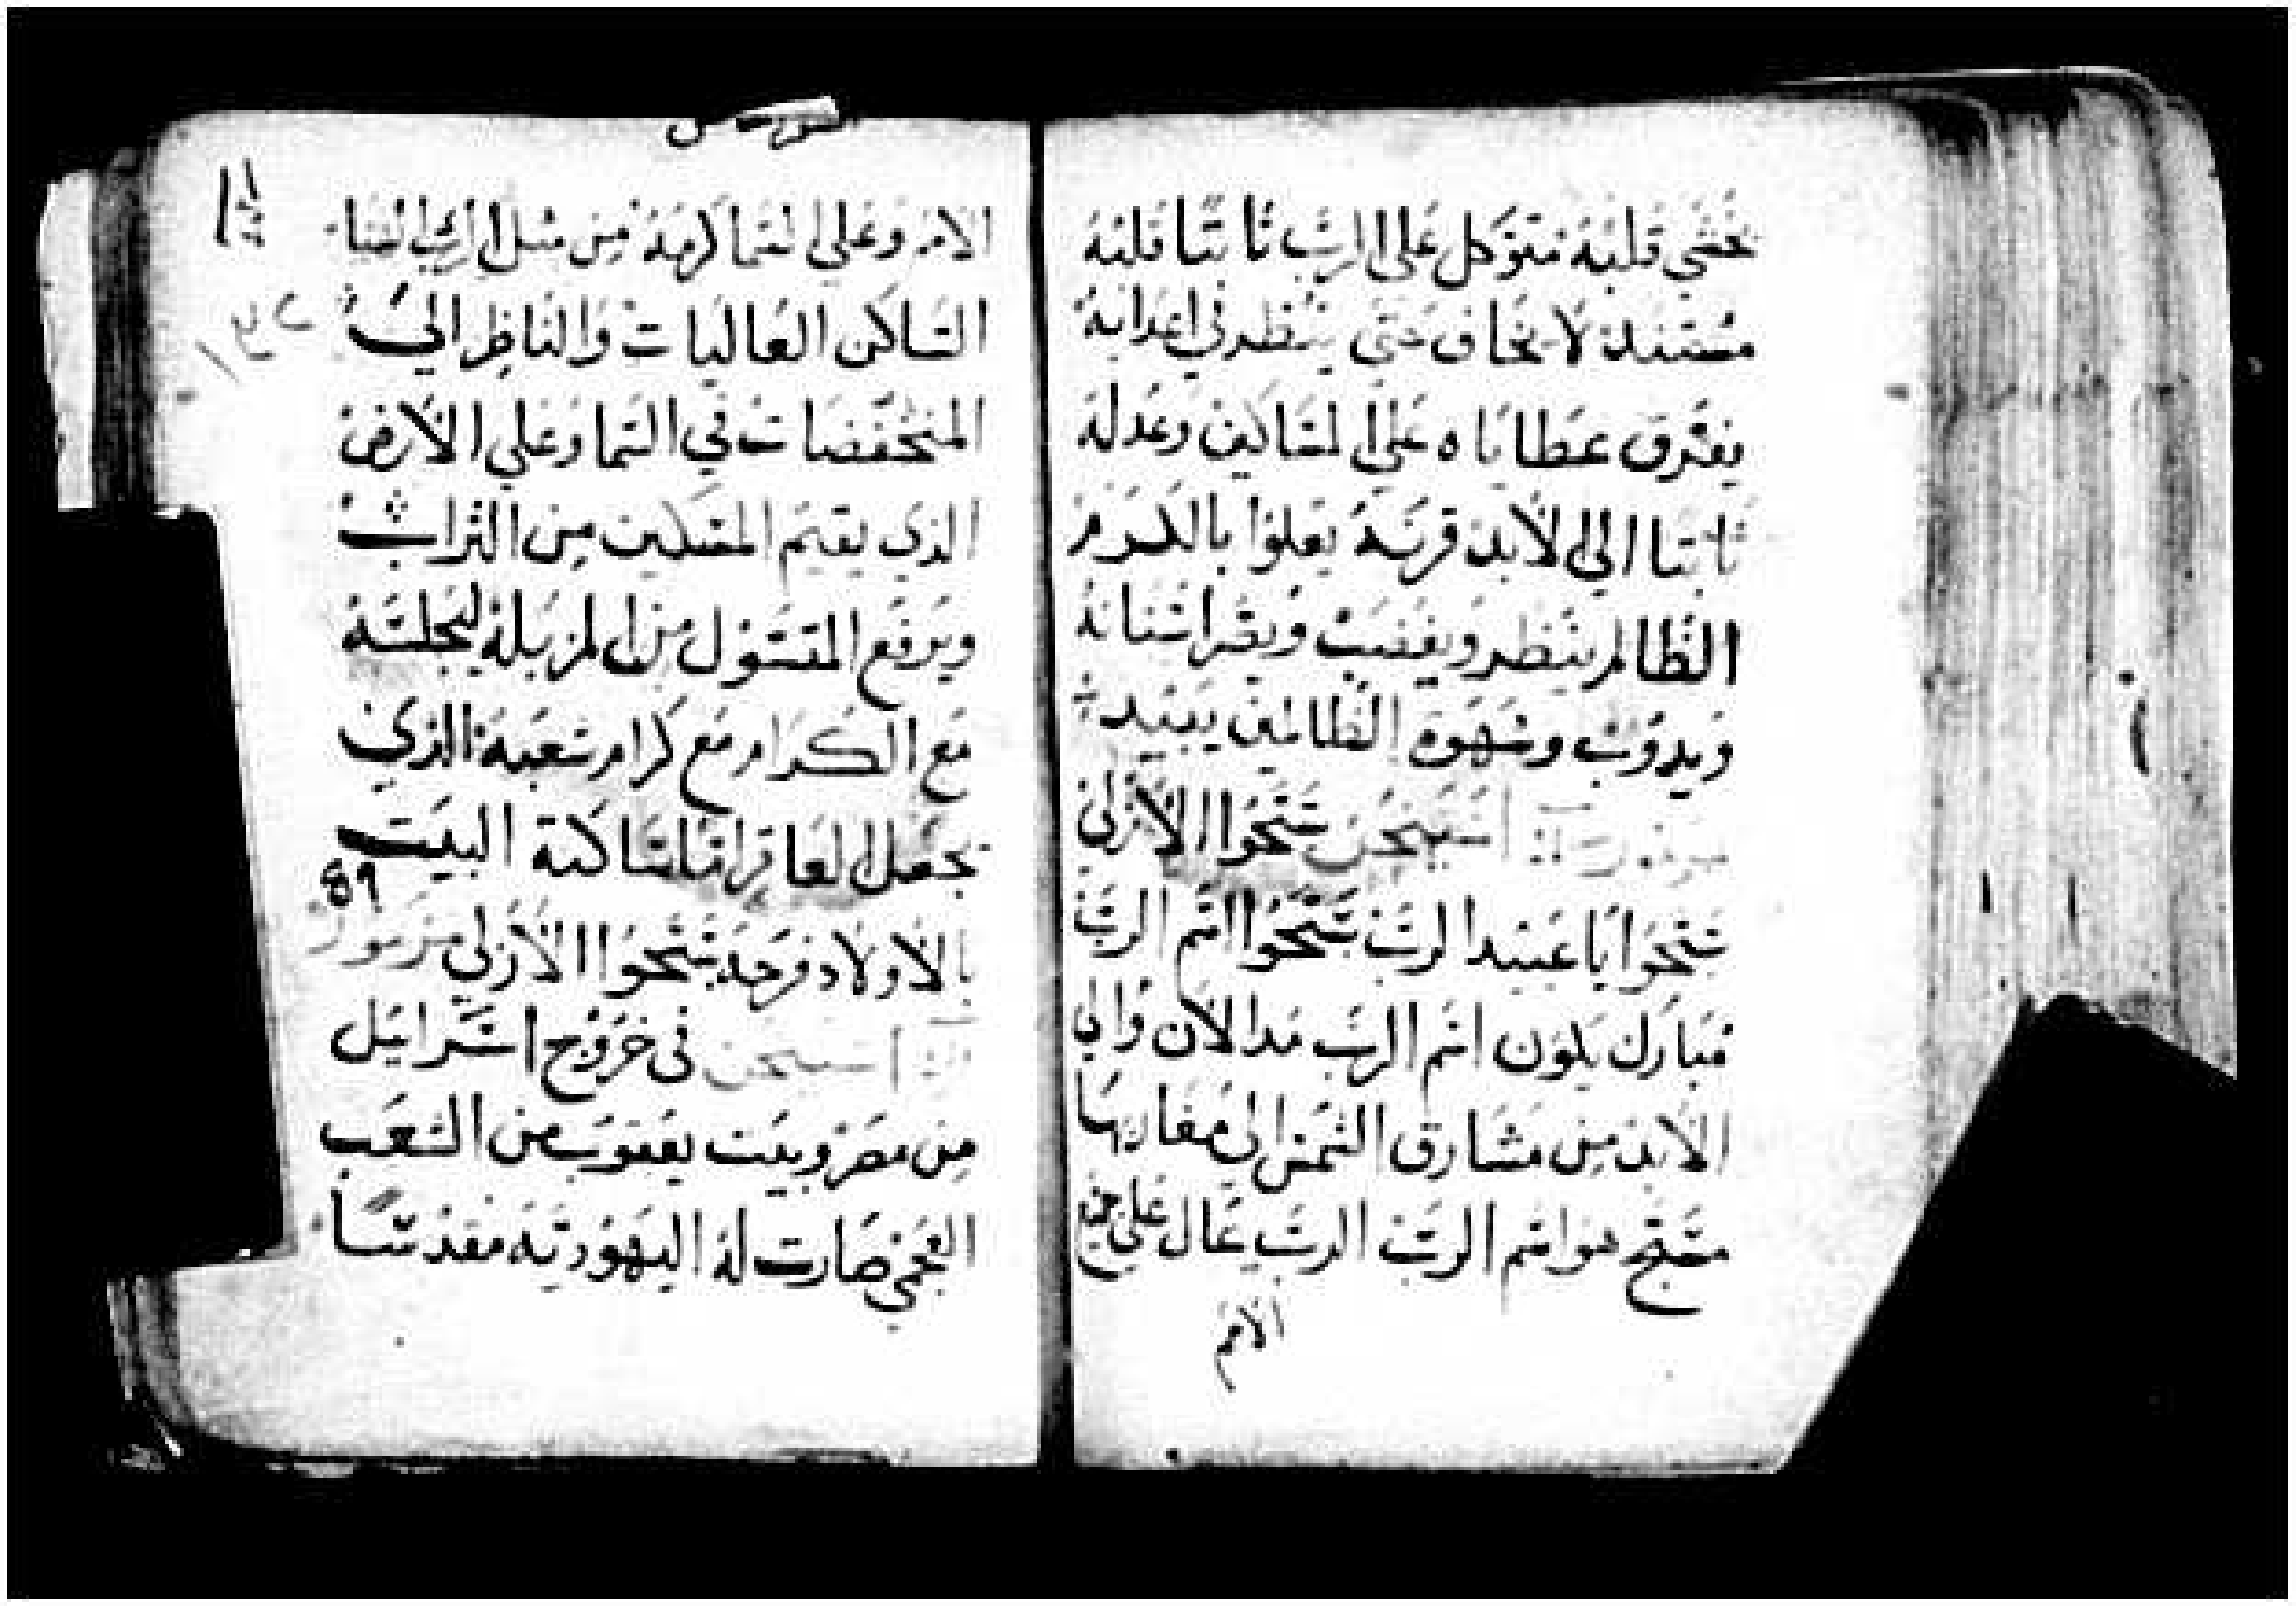 يخشي قلبه متوكل على الرب ثابتا قلبه
مستند لا يخاف حتى ينظر في اعدايه
يفرق عطاياه على المساكين وعدله
ثابتا الى الابد قرنه يعلوا بالكرم
الظالم ينظر ويغضب ويصر اسنانه
ويدوب وشهوة الظالمين يبيد
سبحوا الازلي
سبحوا يا عبيد الرب سبحوا اسم الرب
مبارك يكون اسم الرب مد الان والي
الابد من مشارق الشمس الي مغاربها
مسبح هو اسم الرب الرب عال علي جميع
الامم
الامم وعلي السما كرمه من مثل الرب الهنا
الساكن العاليات والناظر الي
المنخفضات في السما وعلي الارض
الذي يقيم المسكين من التراب
ويرفع المتسول من المزبلة ليجلسه
مع الكرام مع كرام شعبه الذي
يجعل العاقر ساكنة البيت
89
بالاولاد فرحه سبحوا الازلي مزمور
في خروج اسرايل
من مصر وبيت يعقوب من الشعب
العجمي صارت له اليهودية مقدسا